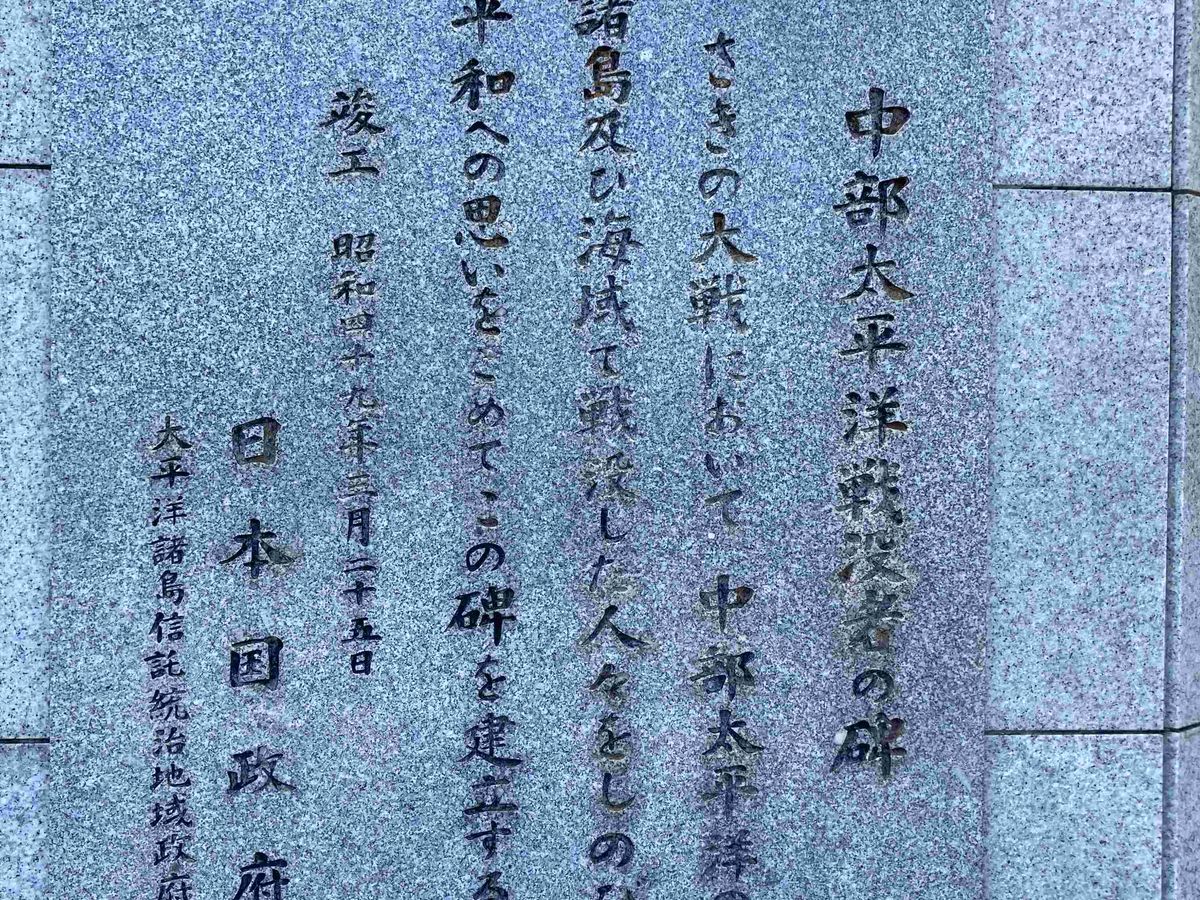 中部太平洋戦没者の碑
さきの大戦において中部太平洋の
諸島及び海域で戦没した人々をしのび
平和への思いをこめてこの碑を建立する
竣工 昭和四十九年三月二十五日
日本国政府
太平洋諸島信託統治地域政府